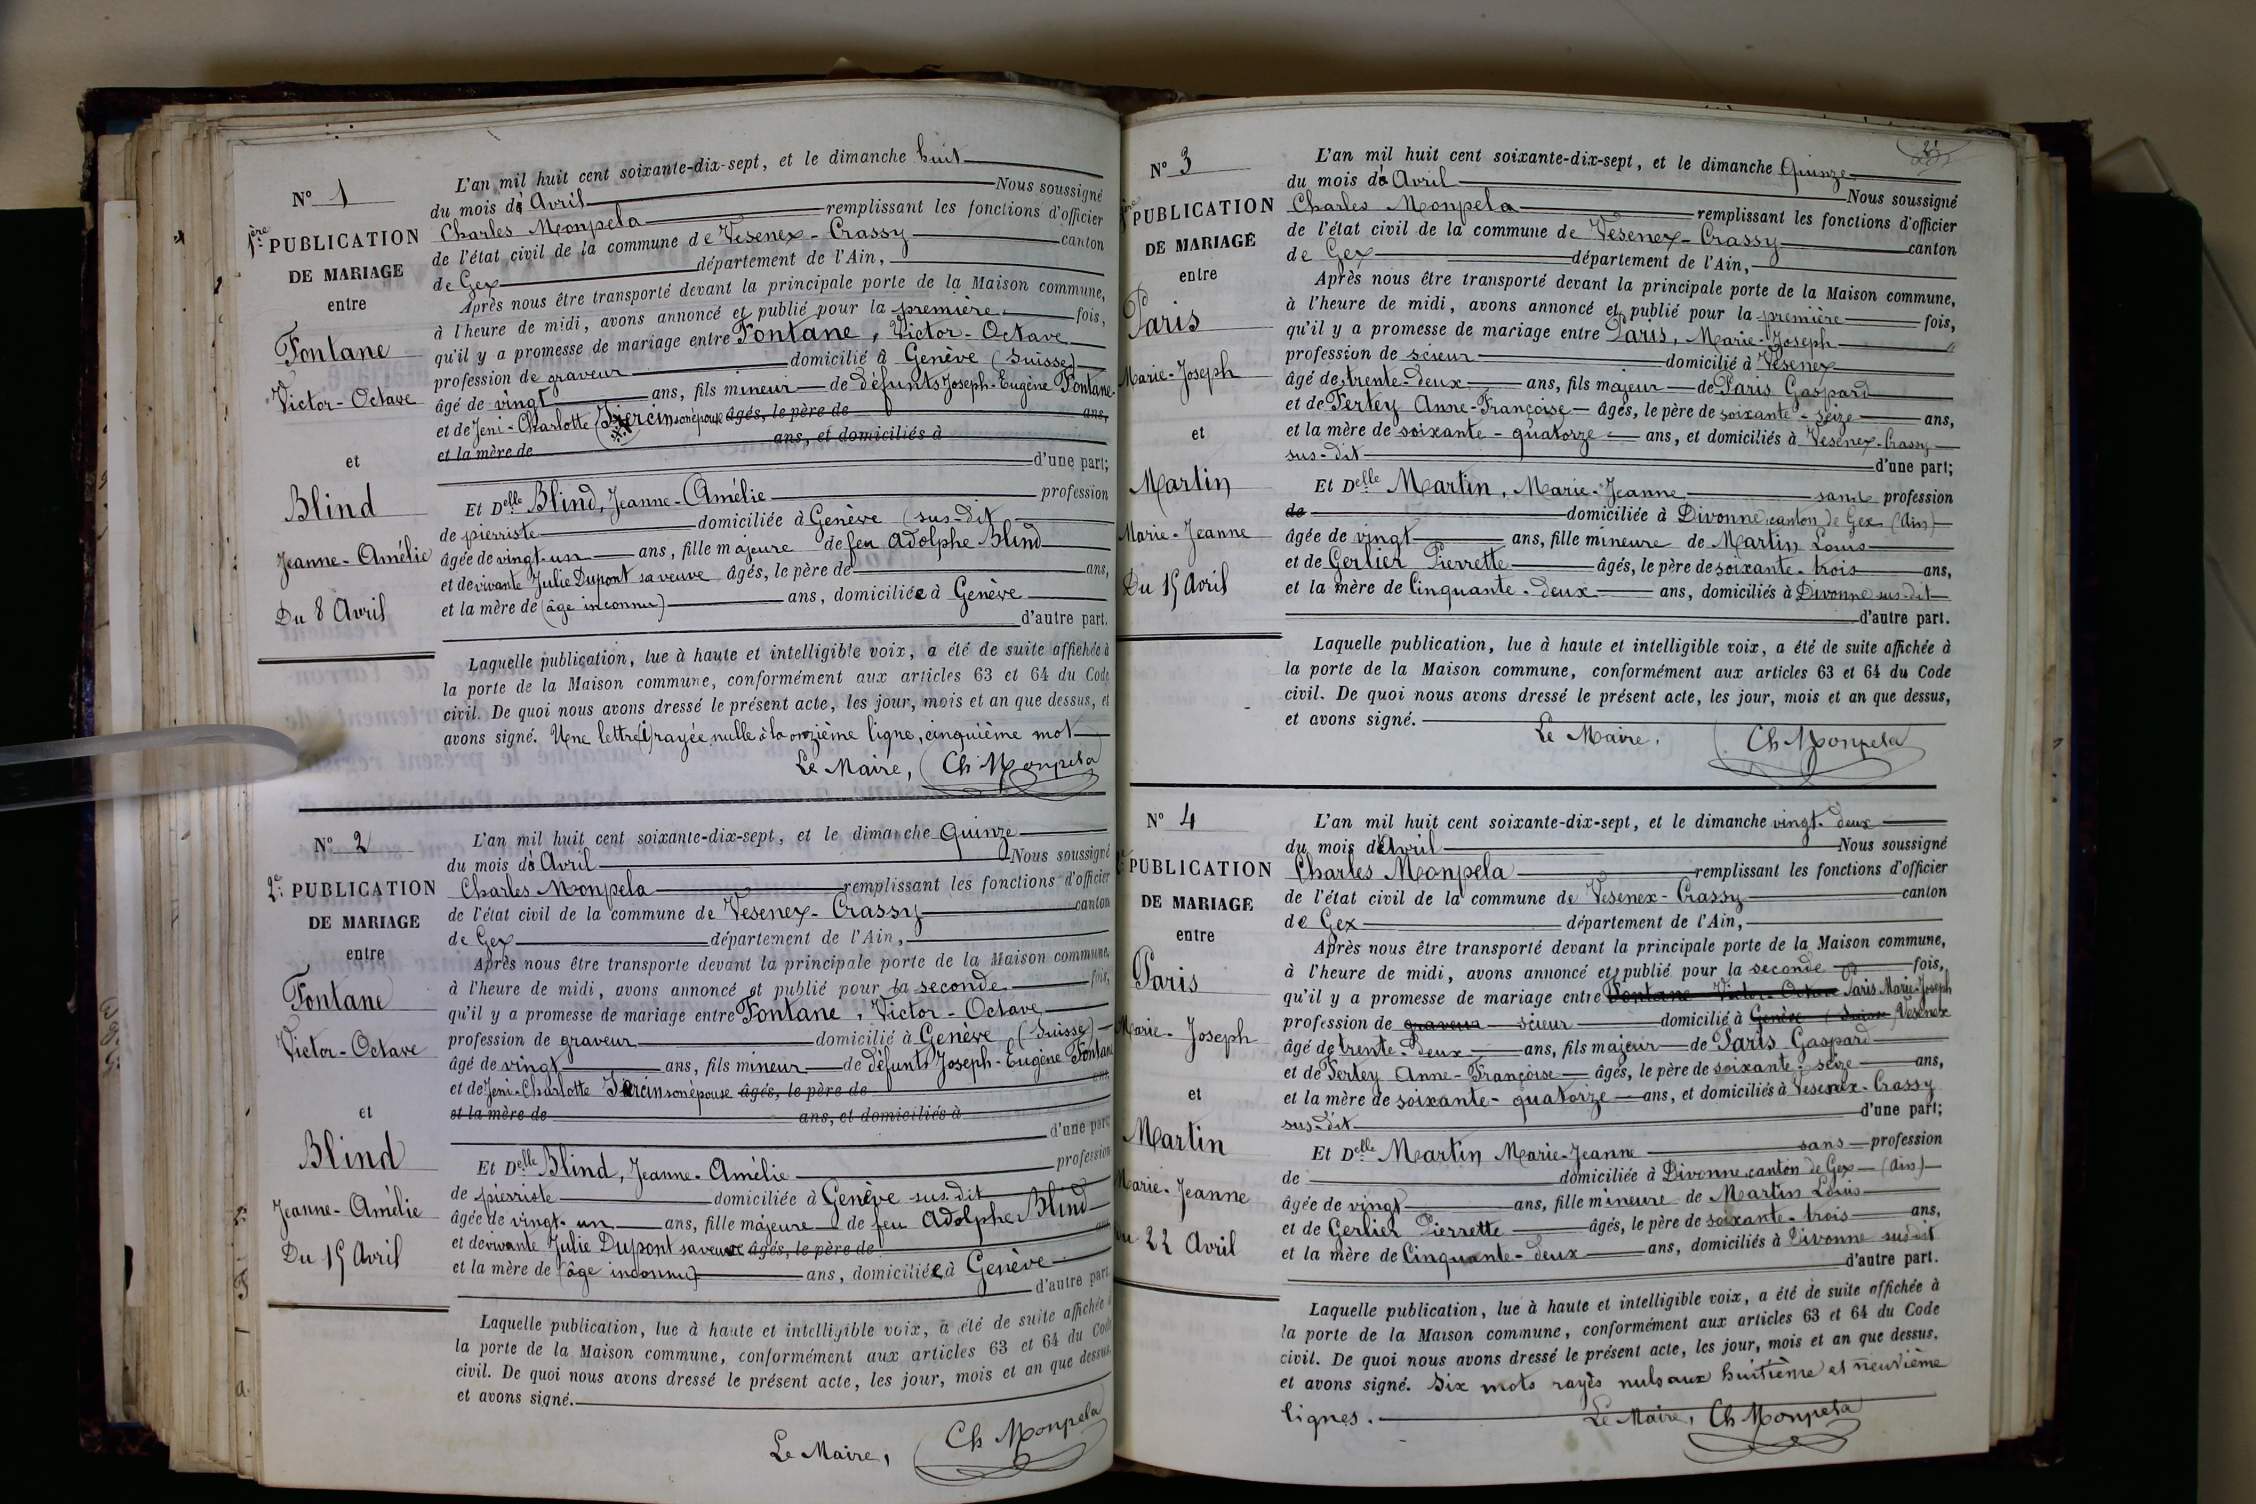 N° 1
1ère PUBLICATION
DE MARIAGE
entre
Fontane
Victor-Octave
et
Blind
Jeanne-Amélie
Du 8 Avril
L'an mil huit cent soixante-dix-sept, et le dimanche huit
du mois d' Avril Nous soussigné
Charles Monpela remplissant les fonctions d'officier
de l'état civil de la commune de Vesenex-Crassy canton
de Gex département de l'Ain,
Après nous être transporté devant la principale porte de la Maison commune,
à l'heure de midi, avons annoncé et publié pour la première fois,
qu'il y a promesse de mariage entre Fontane, Victor-Octave
profession de graveur domicilié à Genève (Suisse)
âgé de vingt ans, fils mineur de défunts Joseph-Eugène Fontane
et de Jeni-Charlotte son épouse âgés, le père de ans,
et la mère de ans, et domiciliés à
d'une part;
Et Delle Blind, Jeanne-Amélie profession
de pierriste domiciliée à Genève sus-dit
âgée de vingt-un ans, fille majeure de feu Adolphe Blind
et de vivante Julie Dupont sa veuve âgés, le père de ans,
et la mère de (âge inconnu) ans, domiciliée à Genève
d'autre part.
Laquelle publication, lue à haute et intelligible voix, a été de suite affichée à
la porte de la Maison commune, conformément aux articles 63 et 64 du Code
civil. De quoi nous avons dressé le présent acte, les jour, mois et an que dessus, et
avons signé. Une lettre rayée nulle à la onzième ligne, cinquième mot
Le Maire, Ch Monpela
N° 2
2e PUBLICATION
DE MARIAGE
entre
Fontane
Victor-Octave
et
Blind
Jeanne-Amélie
Du 15 Avril
L'an mil huit cent soixante-dix-sept, et le dimanche Quinze
du mois d' Avril Nous soussigné
Charles Monpela remplissant les fonctions d'officier
de l'état civil de la commune de Vesenex-Crassy canton
de Gex département de l'Ain,
Après nous être transporté devant la principale porte de la Maison commune,
à l'heure de midi, avons annoncé et publié pour la seconde fois,
qu'il y a promesse de mariage entre Fontane, Victor-Octave
profession de graveur domicilié à Genève (Suisse)
âgé de vingt ans, fils mineur de défunts Joseph-Eugène Fontane
et de Jeni-Charlotte son épouse âgés, le père de ans,
et la mère de ans, et domiciliés à
d'une part;
Et Delle Blind, Jeanne-Amélie profession
de pierriste domiciliée à Genève sus-dit
âgée de vingt-un ans, fille majeure de feu Adolphe Blind
et de vivante Julie Dupont sa veuve âgés, le père de ans,
et la mère de (âge inconnu) ans, domiciliée à Genève
d'autre part
Laquelle publication, lue à haute et intelligible voix, a été de suite affichée à
la porte de la Maison commune, conformément aux articles 63 et 64 du Code
civil. De quoi nous avons dressé le présent acte, les jour, mois et an que dessus,
et avons signé.
Le Maire, Ch Monpela
N° 3
1ère PUBLICATION
DE MARIAGE
entre
Paris
Marie-Joseph
et
Martin
Marie-Jeanne
Du 15 Avril
L'an mil huit cent soixante-dix-sept, et le dimanche Quinze
du mois d' Avril Nous soussigné
Charles Monpela remplissant les fonctions d'officier
de l'état civil de la commune de Vesenex-Crassy canton
de Gex département de l'Ain,
Après nous être transporté devant la principale porte de la Maison commune,
à l'heure de midi, avons annoncé et publié pour la première fois,
qu'il y a promesse de mariage entre Paris, Marie-Joseph
profession de scieur domicilié à Vesenex
âgé de trente-deux ans, fils majeur de Paris Gaspard
et de Fertey Anne-Françoise âgés, le père de soixante-seize ans,
et la mère de soixante-quatorze ans, et domiciliés à Vesenex-Crassy
sus-dit d'une part;
Et Delle Martin, Marie-Jeanne sans profession
de domiciliée à Divonne, canton de Gex (Ain)
âgée de vingt ans, fille mineure de Martin Louis
et de Gerlier Pierrette âgés, le père de soixante-trois ans,
et la mère de Cinquante-deux ans, domiciliés à Divonne sus-dit
d'autre part.
Laquelle publication, lue à haute et intelligible voix, a été de suite affichée à
la porte de la Maison commune, conformément aux articles 63 et 64 du Code
civil. De quoi nous avons dressé le présent acte, les jour, mois et an que dessus,
et avons signé.
Le Maire, Ch Monpela
N° 4
PUBLICATION
DE MARIAGE
entre
Paris
Marie-Joseph
et
Martin
Marie-Jeanne
Du 22 Avril
L'an mil huit cent soixante-dix-sept, et le dimanche vingt-deux
du mois d'Avril Nous soussigné
Charles Monpela remplissant les fonctions d'officier
de l'état civil de la commune de Vesenex-Crassy canton
de Gex département de l'Ain,
Après nous être transporté devant la principale porte de la Maison commune,
à l'heure de midi, avons annoncé et publié pour la seconde fois,
qu'il y a promesse de mariage entre Fontane Victor-Octave Paris Marie-Joseph
profession de graveur scieur domicilié à Genève (Suisse) Vesenex
âgé de trente-deux ans, fils majeur de Paris Gaspard
et de Fertey Anne-Françoise âgés, le père de soixante-seize ans,
et la mère de soixante-quatorze ans, et domiciliés à Vesenex-Crassy
sus-dit d'une part;
Et Delle Martin Marie-Jeanne sans profession
de domiciliée à Divonne, canton de Gex (Ain)
âgée de vingt ans, fille mineure de Martin Louis
et de Gerlier Pierrette âgés, le père de soixante-trois ans,
et la mère de Cinquante-deux ans, domiciliés à Divonne susdit
d'autre part.
Laquelle publication, lue à haute et intelligible voix, a été de suite affichée à
la porte de la Maison commune, conformément aux articles 63 et 64 du Code
civil. De quoi nous avons dressé le présent acte, les jour, mois et an que dessus,
et avons signé. Six mots rayés nuls aux huitième et neuvième
lignes.
Le Maire, Ch Monpela